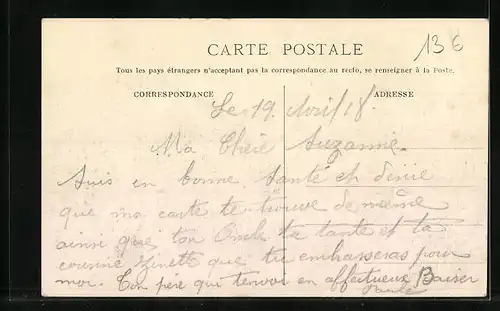 CARTE POSTALE
136
Tous les pays étrangers n'acceptant pas la correspondance au recto, se renseigner à la Poste.
CORRESPONDANCE
ADRESSE
Le 19 Avril 18.
Ma Cheie Suzanne.
Suis en bonne santé et désire
que ma carte te trouve de même
ainsi que ton Oncle ta tante et ta
cousine Ginette que tu embrasseras pour
moi. Ton père qui t'envoi en affectueux Baiser